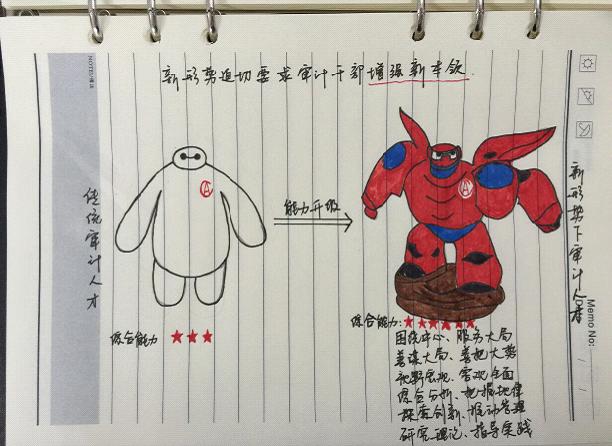 新形势迫切要求审计干部增强新本领
传统审计人才
能力升级
新形势下审计人才
综合能力 ★★★
综合能力:★★★★★★
围绕中心、服务大局
善谋大局、善把大势
视野宏观、客观全面
综合分析、把握规律
探索创新、推动管理
研究理论、指导实践
A
A
Memo No:
/ /